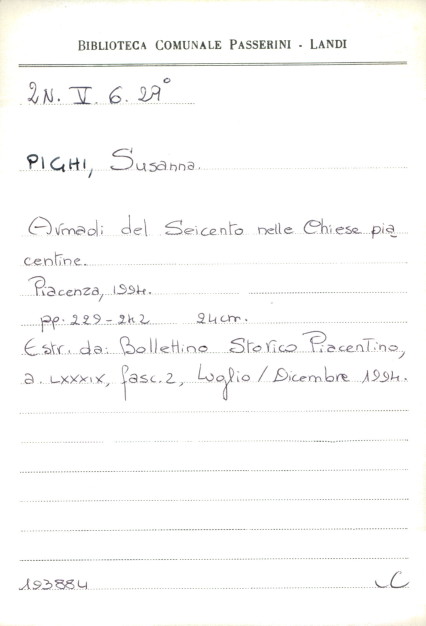 BIBLIOTECA COMUNALE PASSERINI - LANDI
2N. V. 6. 29°
PIGHI, Susanna.
Armadi del Seicento nelle Chiese pia
centine.
Piacenza, 1994.
pp. 229-242 24cm.
Estr. da: Bollettino Storico Piacentino,
a. LXXXIX, fasc. 2, Luglio / Dicembre 1994.
193884 C